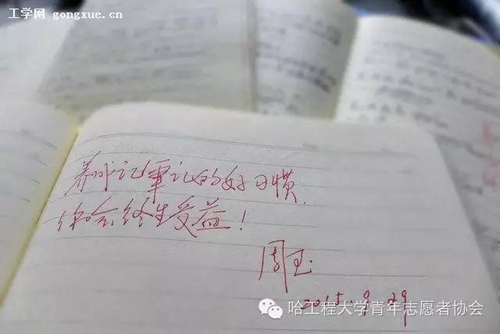 工学网 gongxue.cn
养成记笔记的好习惯,
你会终生受益!
周玉
2015.9.29
哈工程大学青年志愿者协会